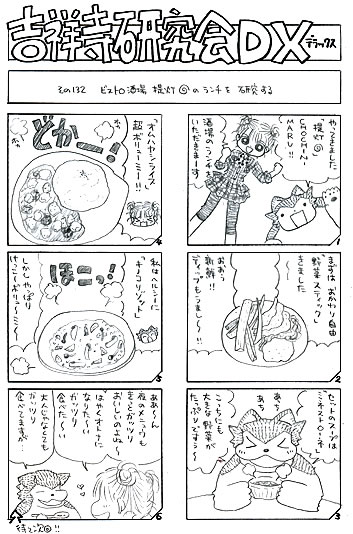 吉祥寺研究会DX
デラックス
その132 ビストロ酒場 提灯◎のランチを研究する
やってきました
「提灯◎」
CHOCHIN-
MARU!!
酒場のランチを
いただきまーす
1
まずはおかわり自由
「野菜スティック」
きました
おおう
新鮮!!
ディップもうま〜い!!
2
セットのスープは
「ミネストローネ」
あち
あち
こっちにも
大きな野菜が
たっぷりですぅ〜
3
「オムハヤシライス
超ボリューミー!!」
どかーー!
ホァ
ホァ
4
私はヘルシーに
「キノコリゾット」
ほこっ!
しかしやっぱり
けっこうボリュ〜ミ〜
5
ああ〜ん
夜のメニュウも
きっとガッツリ
おいしいのよね〜
はやくオトナに
なりた〜い
ガッツリ
食べた〜い
大人じゃなくても
ガッツリ
食べてますが…
6
待て次回!!